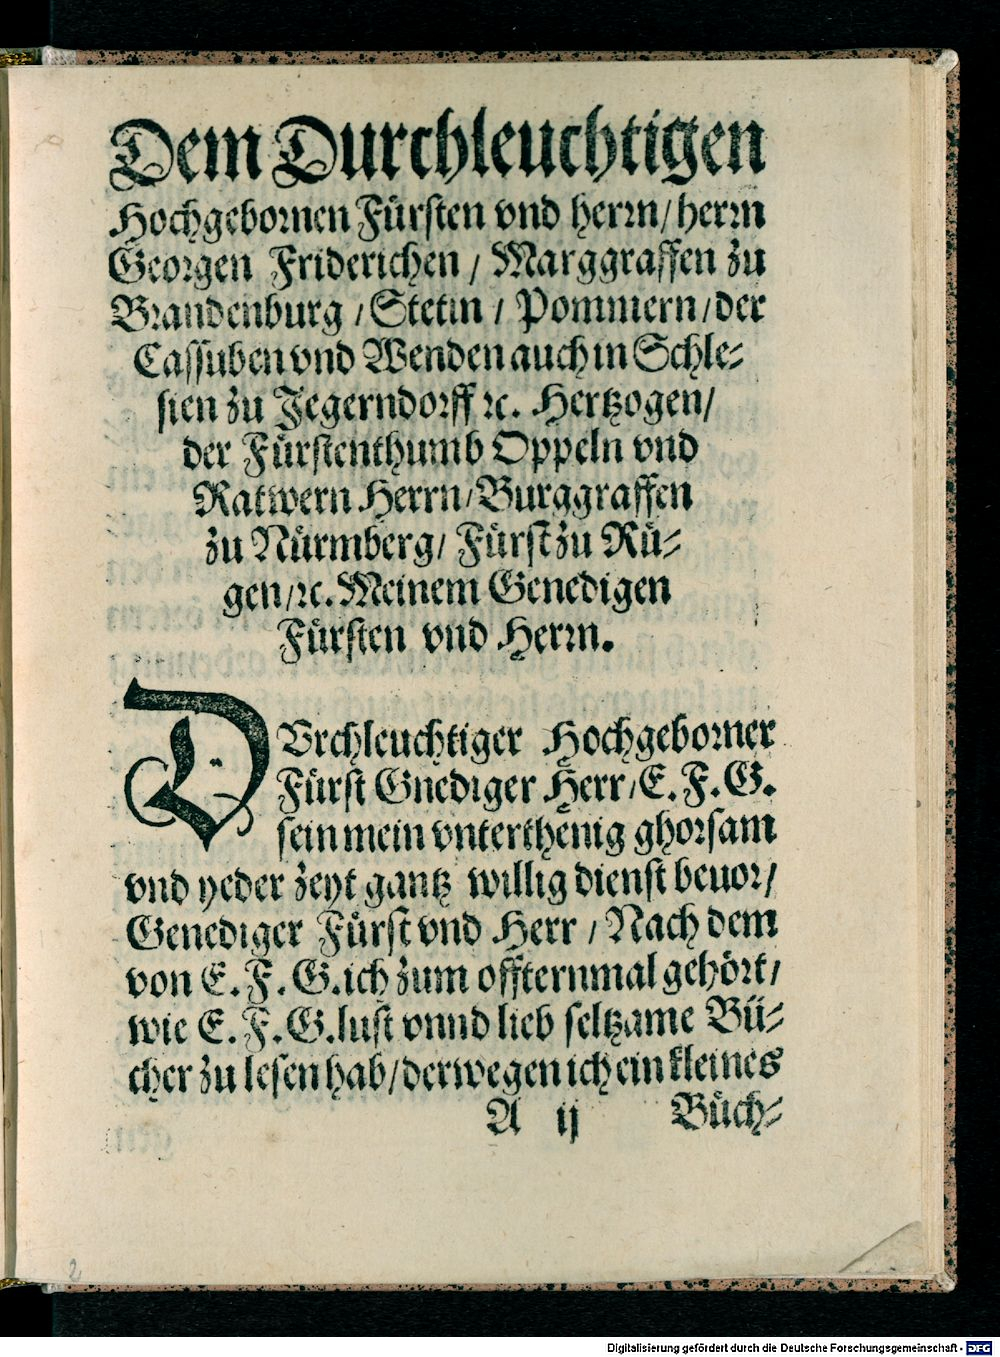 Dem Durchleuchtigen
Hochgebornen Fürsten vnd herrn/herrn
Georgen Friderichen / Marggraffen zu
Brandenburg /Stetin / Pommern/der
Cassuben vnd Wenden auch in Schle-
sien zu Jegerndorff ꝛc. Hertzogen/
der Fürstenthumb Oppeln vnd
Ratwern Herrn/Burggraffen
zu Nürmberg/ Fürst zu Rü-
gen/ꝛc. Meinem Genedigen
Fürsten vnd Herrn.
DVrchleuchtiger Hochgeborner
Fürst Gnediger Herr/E. F. G.
sein mein vnterthenig ghorsam
vnd yeder zeyt gantz willig dienst beuor/
Genediger Fürst vnd Herr / Nach dem
von E. F. G. ich zum offternmal gehört/
wie E. F. G. lust vnnd lieb seltzame Bü-
cher zu lesen hab/derwegen ich ein kleines
A ij Büch-
2
Digitalisierung gefördert durch die Deutsche Forschungsgemeinschaft - DFG